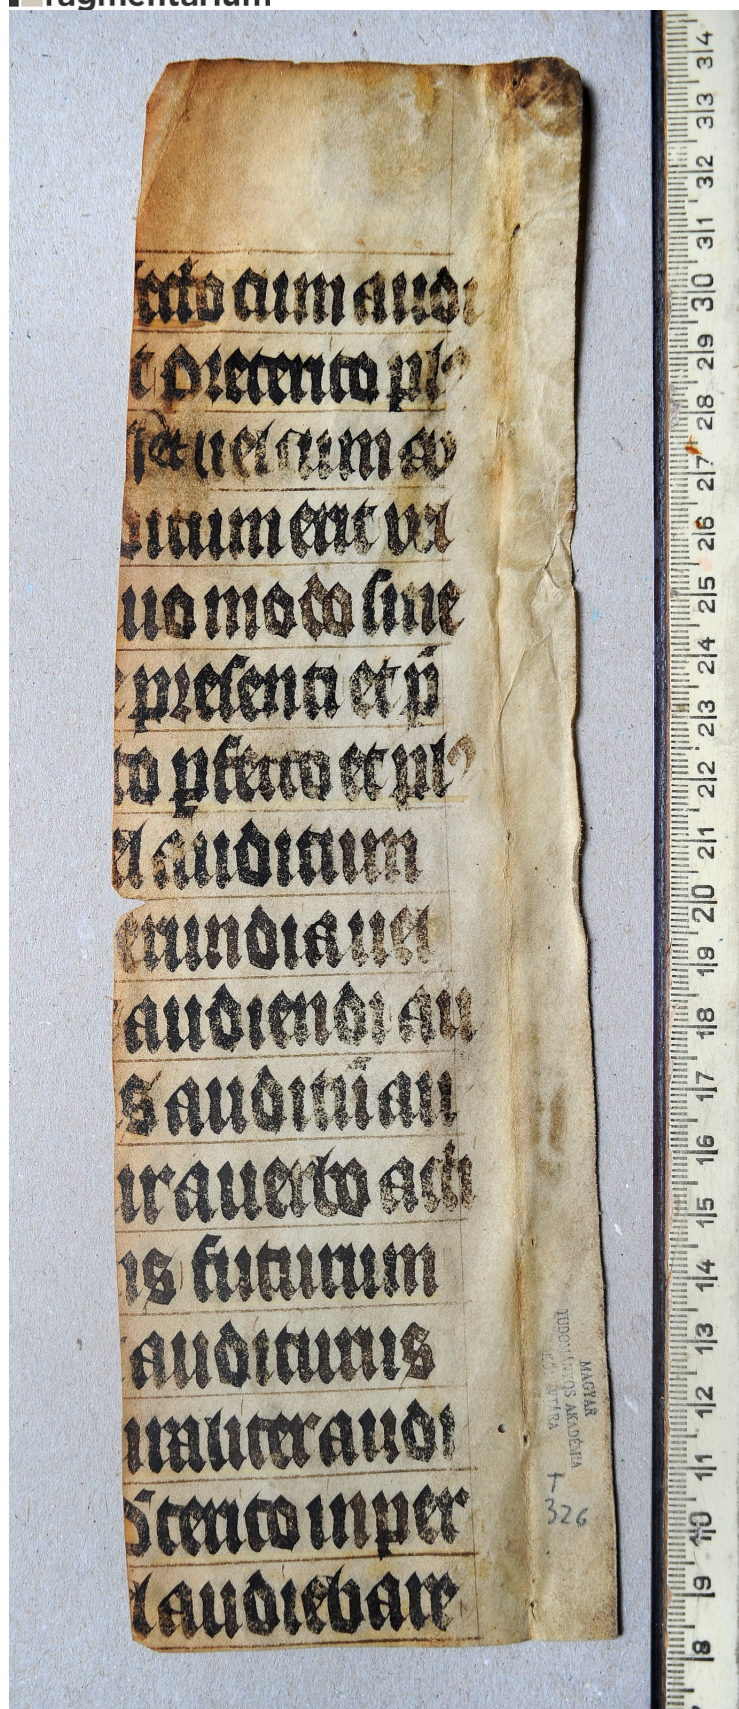 ragmentarium
fecto cum audi
t preterito pl
et uel cum a
ditum erit vel
uo modo sine
presenti et p̄
to ꝑfecto et pl
el auditum
erundia uel
audiendi au
s auditū au
ur a uerbo acti
is futurum
auditurus
uraliter audi
p̄terito inper
l audiebare
MAGYAR
TUDOMÁNYOS AKADÉMIA
KÖNYVTÁRA
T
326
34
33
32
31
30
29
28
27
26
25
24
23
22
21
20
19
18
17
16
15
14
13
12
11
10
9
8